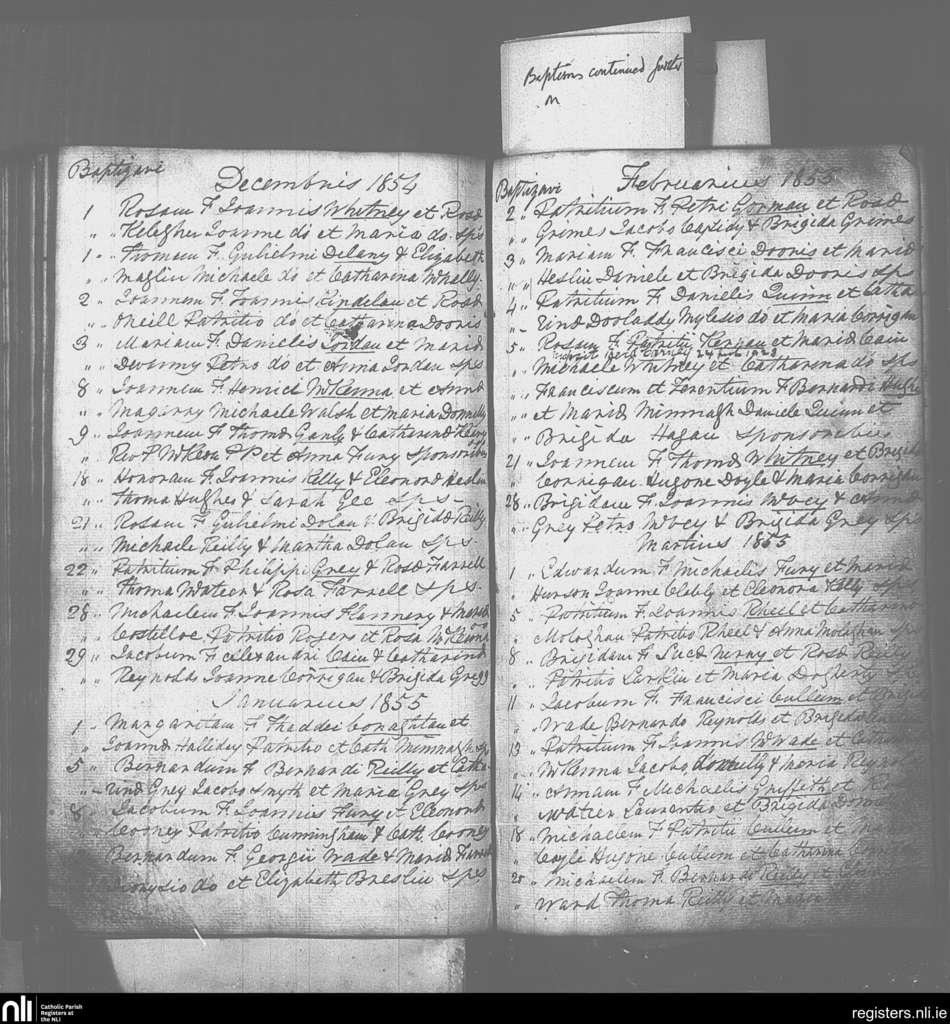 Baptisms continued further
on
Baptizavi
Decembris 1854
1 Rosam F Joannis Whitney et Rosa
" " Kelagher Joanne do et Maria do. Sps
1 " Thomam F. Gulielmi Delany & Elizabeth
" " Maglin Michaele do et Catharina Whally
2 " Joannem F. Joannis Kindelan et Rosa
" " Oneill Patritio do et Catharina Dooris
3 " Mariam F. Danielis Jordan et Maria
" " Petro do et Anna Jordan Sps
8 " Joannem F. Henrici McKenna et Anna
" " Magarry Michaele Walsh et Maria Donnelly
9 " Joannem F Thoma Ganly & Catharina
" " Rev P McKeon P P et Anna Fury Sponsoribus
18 " Honoram F. Joannis Kelly & Eleonora Heslin
" " Thoma Hughes & Sarah Gee Sps
21 " Rosam F Gulielmi Dolan & Brigida Reilly
" " Michaele Reilly & Martha Dolan Sps
22 " Patritium F Philippi Grey & Rosa Farrell
" " Thoma Water & Rosa Farrell Sps
28 " Michaelem F Joannis Flannery & Maria
" " Costelloe Patritio Rogers et Rosa McKenna
29 " Jacobum F Alexandri Cain & Catharina
" " Reynolds Joanne Corrigan & Brigida Gregg
Januarius 1855
1 " Margaretam F Thaddei Conaghtan et
" Joanna Halliday Patritio et Cath Mimmagh Sps
5 " Bernardum F Bernardi Reilly et Catha
" " rina Grey Jacobo Smyth et Maria Grey Sps
8 " Jacobum F. Joannis Fury et Eleonora
" " Cooney Patritio Cunningham & Cath. Cooney
Bernardum F. Georgii Wade & Maria Farrell
Dionysio do et Elizabeth Breslin Sps
Baptizavi
Februarius 1855
2 " Patritium F. Petri Gorman et Rosa
" " Grimes Jacobo Cassidy & Brigida Grimes
3 " Mariam F. Francisci Dooris et Maria
" " Heslin Daniele et Brigida Dooris Sps
4 " Patritium F. Danielis Quinn et Catha
" " rina Dooladdy Mylesio do et Maria Corrigan
5 " Rosam F Patritii Kernan et Maria Cain
" " Michaele Whitney et Catharina do Sps
" " Franciscum et Terentium F Bernardi Hughes
" " et Maria Mimnagh Daniele Quinn et
" " Brigida Hagan Sponsoribus
21 " Joannem F. Thoma Whitney et Brigida
" " Corrigan Eugone Doyle & Maria Corrigan
28 " Brigidam F. Joannis McVey & Anna
" " Grey Petro McVey & Brigida Grey Sps
Martius 1855
1 " Edwardum F Michaelis Fury et Maria
" Hunson Joanne Clebly et Eleonora Kelly Sps
5 " Patritium F. Joannis Rheel et Catharina
" Mologhan Patritio Rheel & Anna Mologhan Sps
8 " Brigidam F Luca Nerny et Rosa
" Patritio Larkin et Maria Doherty
11 " Jacobum F. Francisci Cullum et
" Wade Bernardo Reynolds et Brigida
13 " Patritium F. Joannis McWade et Catharina
" McKenna Jacobo Donnelly & Maria
14 " Annam F Michaelis Griffeth et
" Laurentio et Brigida
18 " Michaelem F Patritii Cullum et
" Coyle Hugone Cullum et Catharina
20 " Michaelem F. Bernardi Reilly et
" Ward Thoma Reilly et Maria
nli
Catholic Parish
Registers at
the NLI
registers.nli.ie